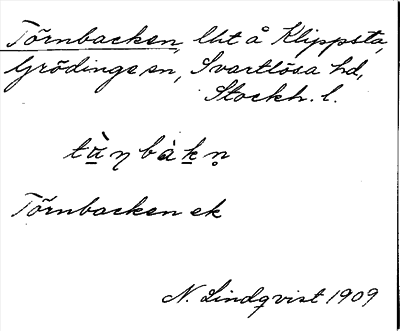 Törnbacken, lht å Klippsta,
Grödinge sn, Svartlösa hd,
Stockh. l.
tù̱ŋbàḵn̥
Törnbacken ek
N. Lindqvist 1909